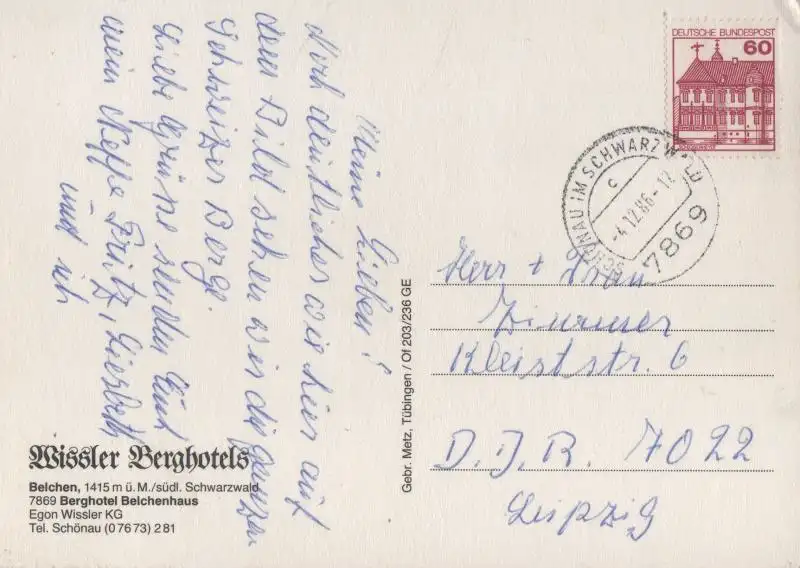 Meine Lieben!
Noch deutlicher wie hier auf
dem Bild sehen wir die ganzen
Schweizer Berge.
Liebe Grüße senden Euch
mein Neffe Fritz, Liesbeth
und ich
Wissler Berghotels
Belchen, 1415 m ü. M./südl. Schwarzwald
7869 Berghotel Belchenhaus
Egon Wissler KG
Tel. Schönau (0 76 73) 2 81
Gebr. Metz, Tübingen / Of 203/236 GE
DEUTSCHE BUNDESPOST
60
SCHÖNAU IM SCHWARZWALD
c
-4.12.86-12
7869
Herr + Frau
Zimmer
Kleiststr. 6
D.D.R. 7022
Leipzig